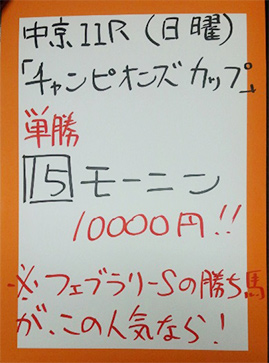 中京11R(日曜)
「チャンピオンズカップ」
単勝
15 モーニン
10000円!!
※フェブラリーSの勝ち馬
が、この人気なら!